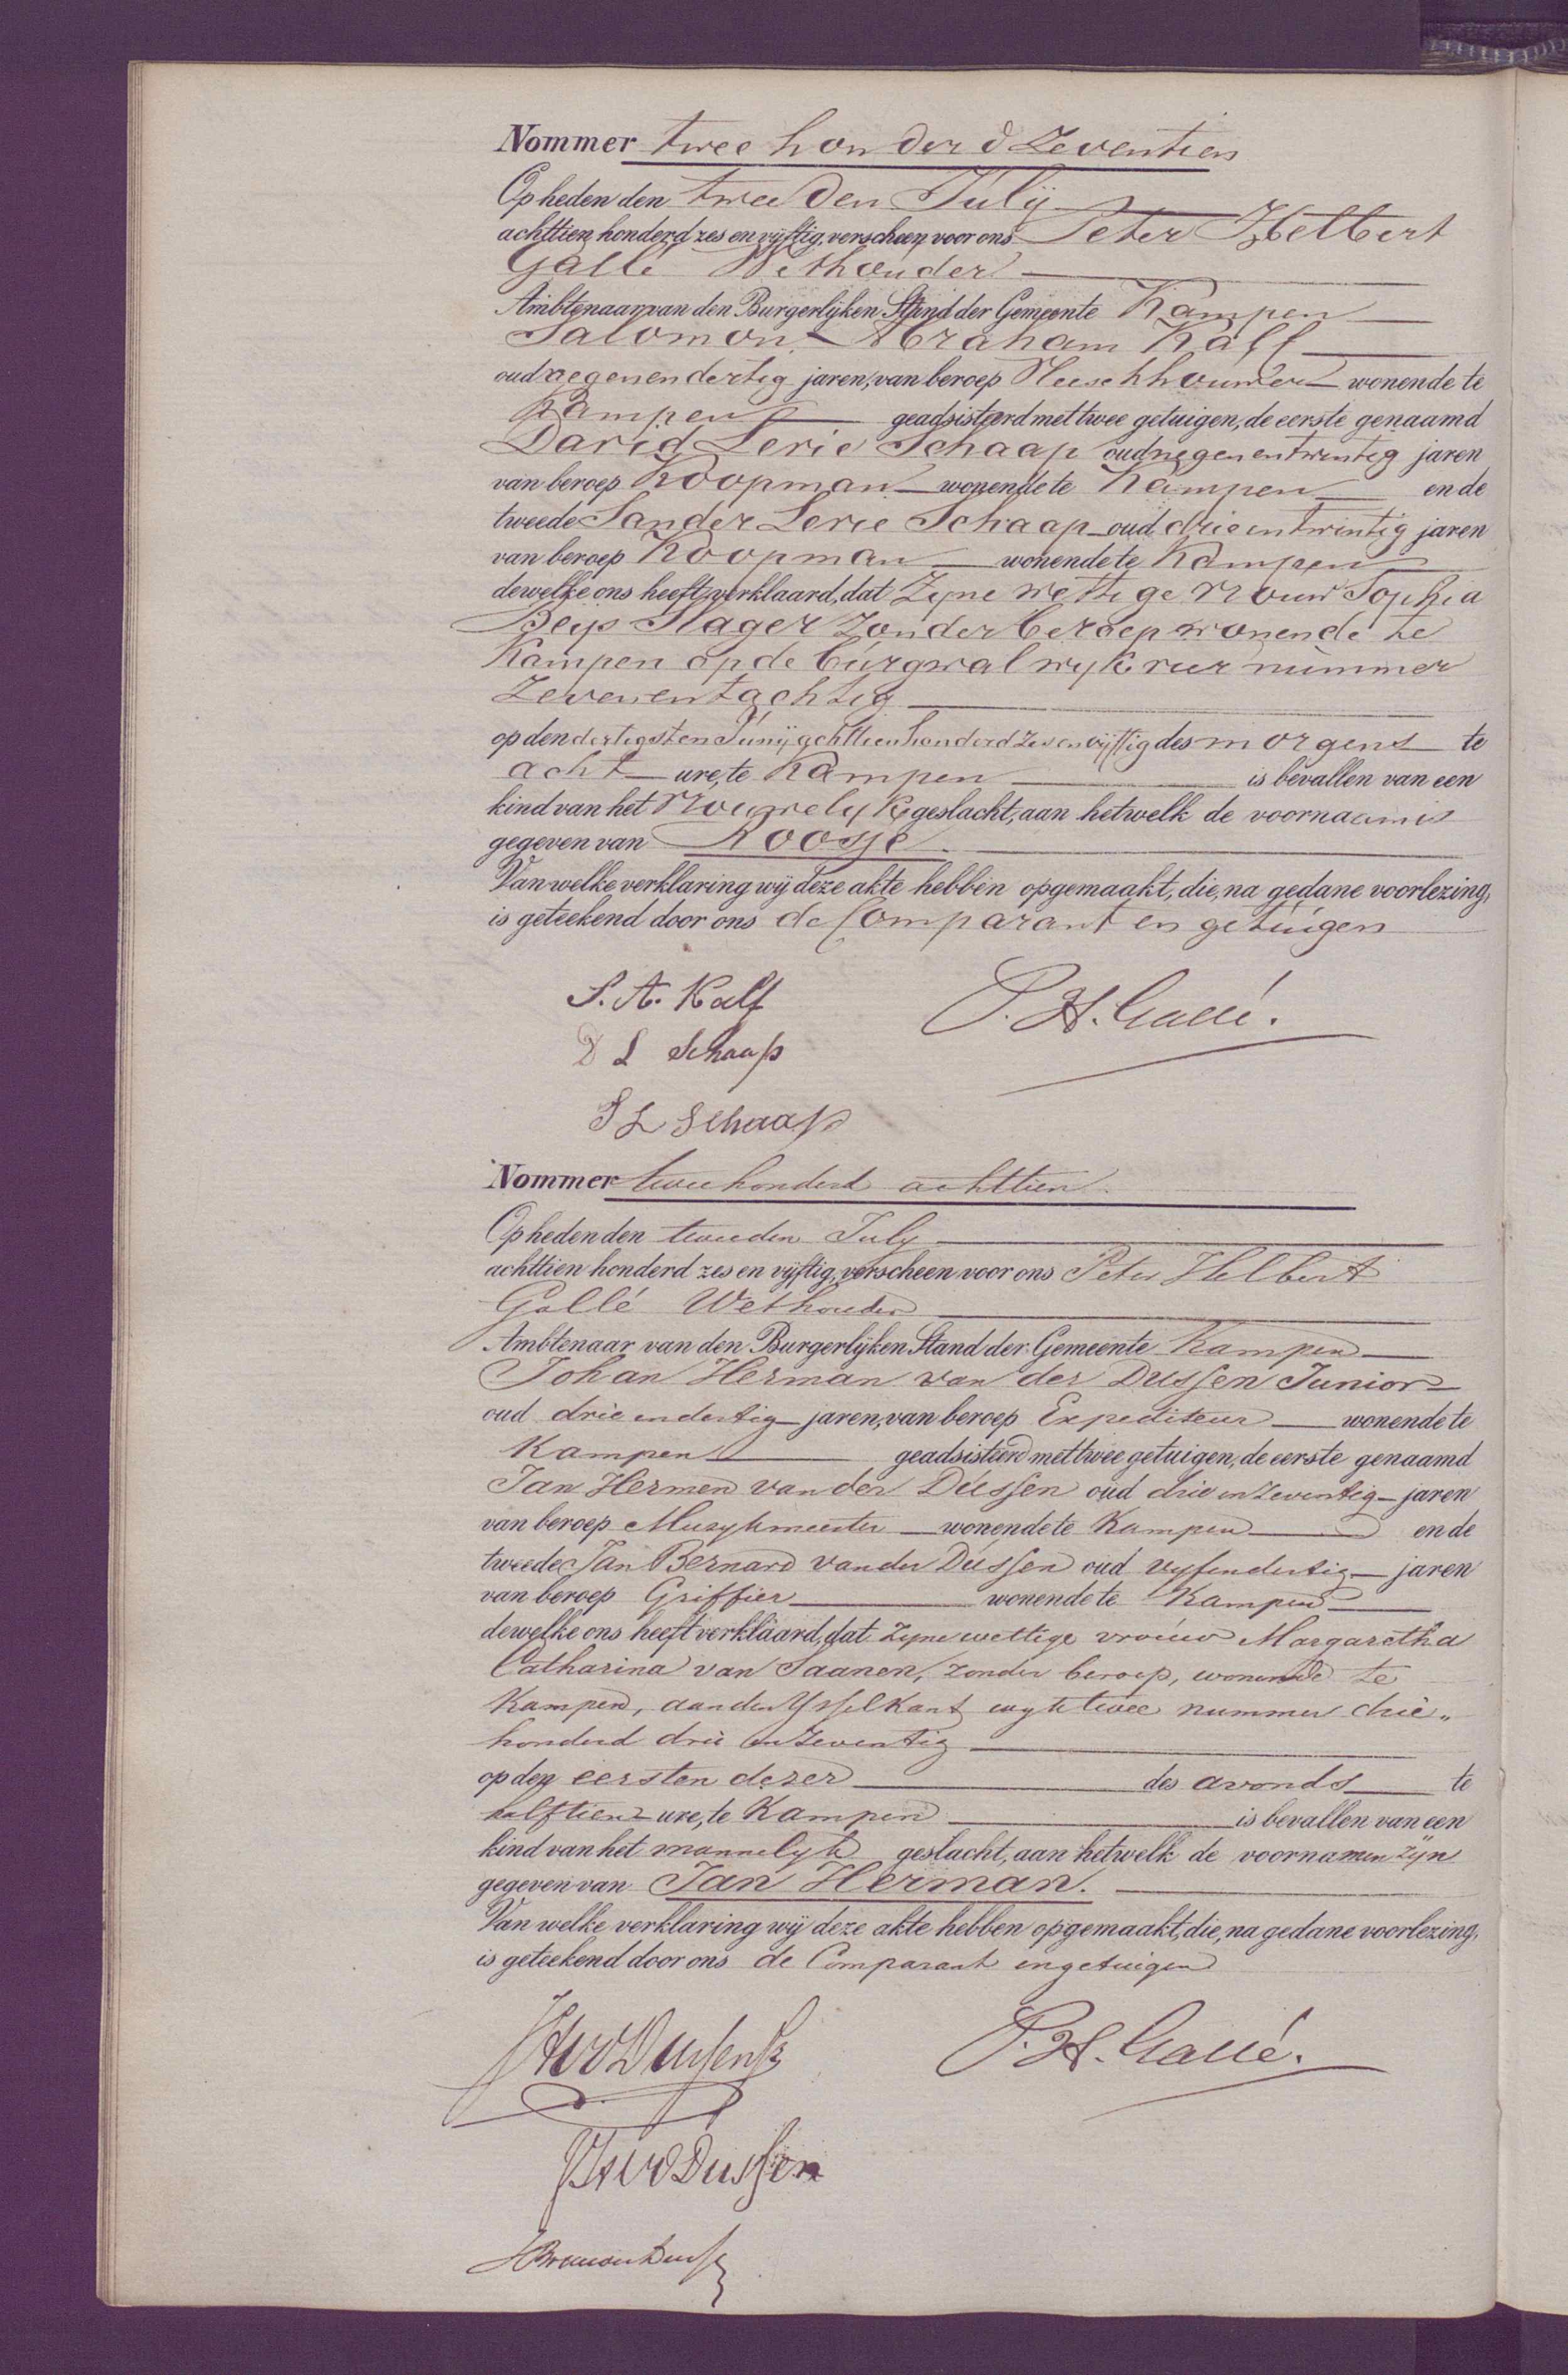 Nommer twee honderd zeventien
Op heden den tweeden Julij
achttien honderd zes en vijftig, verscheen voor ons Peter Helbert
Gallé Wethouder
Ambtenaar van den Burgerlijken Stand der Gemeente Kampen
Salomon Abraham Kalf
oud negenendertig jaren, van beroep Vleeschhouwer wonende te
Kampen geadsisteerd met twee getuigen, de eerste genaamd
David Levie Schaap oud negenentwintig jaren
van beroep Koopman wonende te Kampen en de
tweede Sander Levie Schaap oud drieentwintig jaren
van beroep Koopman wonende te Kampen
dewelke ons heeft verklaard, dat Zyne wettige vrouw Sophia
Slager Zonder beroep wonende te
Kampen op de burgwal wyk vier nummer
Zevenentachtig
op den dertigsten Junij achttienhonderd zesenvijftig des morgens te
acht ure, te Kampen is bevallen van een
kind van het Vrouwelyk geslacht, aan hetwelk de voornaam is
gegeven van Roosje
Van welke verklaring wij deze akte hebben opgemaakt, die, na gedane voorlezing,
is geteekend door ons de Comparant en getuigen
S. A. Kalf P. H. Gallé.
D L Schaap
S L Schaap
Nommer tweehonderd achttien
Op heden den tweeden July
achttien honderd zes en vijftig, verscheen voor ons Peter Helbert
Gallé Wethouder
Ambtenaar van den Burgerlijken Stand der Gemeente Kampen
Johan Herman van der Dussen Junior
oud drie en dertig jaren, van beroep Expediteur wonende te
Kampen geadsisteerd met twee getuigen, de eerste genaamd
Jan Hermen van der Dussen oud drie en zeventig jaren
van beroep Muzykmeester wonende te Kampen en de
tweede Jan Bernard van der Dussen oud vyfendertig jaren
van beroep Griffier wonende te Kampen
dewelke ons heeft verklaard, dat zyne wettige vrouw Margaretha
Catharina van Saanen, zonder beroep, wonende te
Kampen, aan den Ysselkant wyk twee nummer drie„
honderd drie en zeventig
op den eersten dezer des avonds te
half tien ure, te Kampen is bevallen van een
kind van het mannelyk geslacht, aan hetwelk de voornamen zijn
gegeven van Jan Herman.
Van welke verklaring wij deze akte hebben opgemaakt, die, na gedane voorlezing,
is geteekend door ons de Comparant en getuigen
JHvDussen Jr P. H. Gallé.
JHvDussen